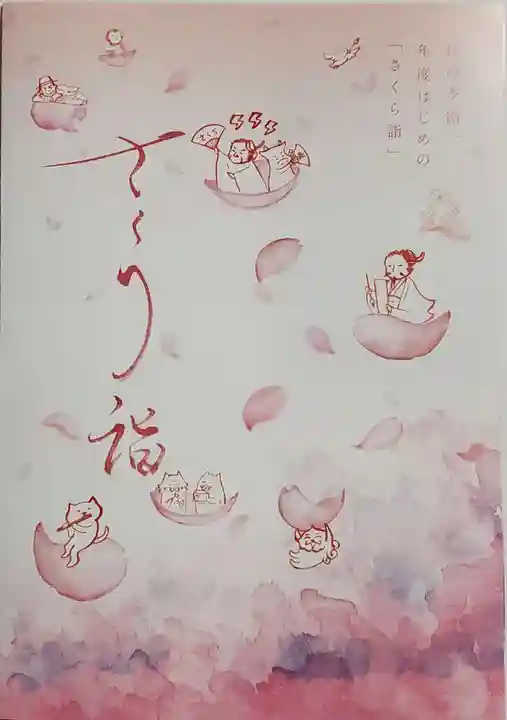 年度はじめの
「さくら詣」
さくら詣
さくら